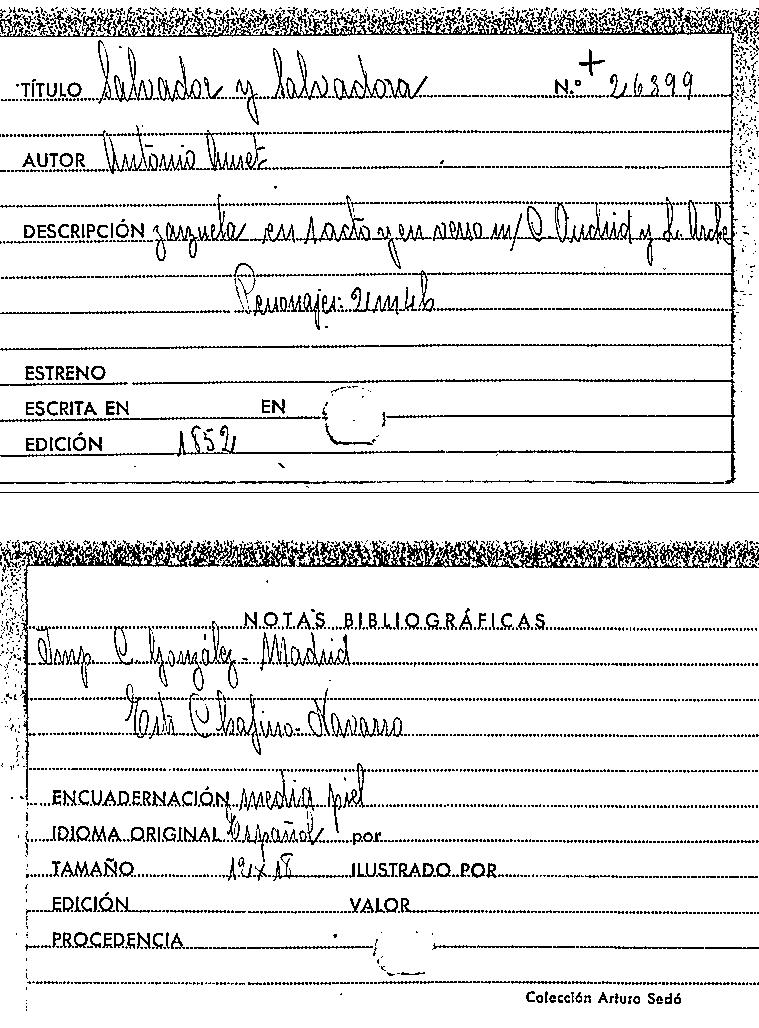 TÍTULO Salvador y Salvadora N.º + 26399
AUTOR Antonio Auset
DESCRIPCIÓN zarzuela en 1 acto y en verso m/ C. Oudrid y L. Arche
Personajes: 2 m 4 h
ESTRENO
ESCRITA EN EN
EDICIÓN 1852
NOTAS BIBLIOGRÁFICAS
Imp. C. González - Madrid
Navarro
ENCUADERNACIÓN media piel
IDIOMA ORIGINAL Español por
TAMAÑO 12 x 18 ILUSTRADO POR
EDICIÓN VALOR
PROCEDENCIA
Colección Arturo Sedó